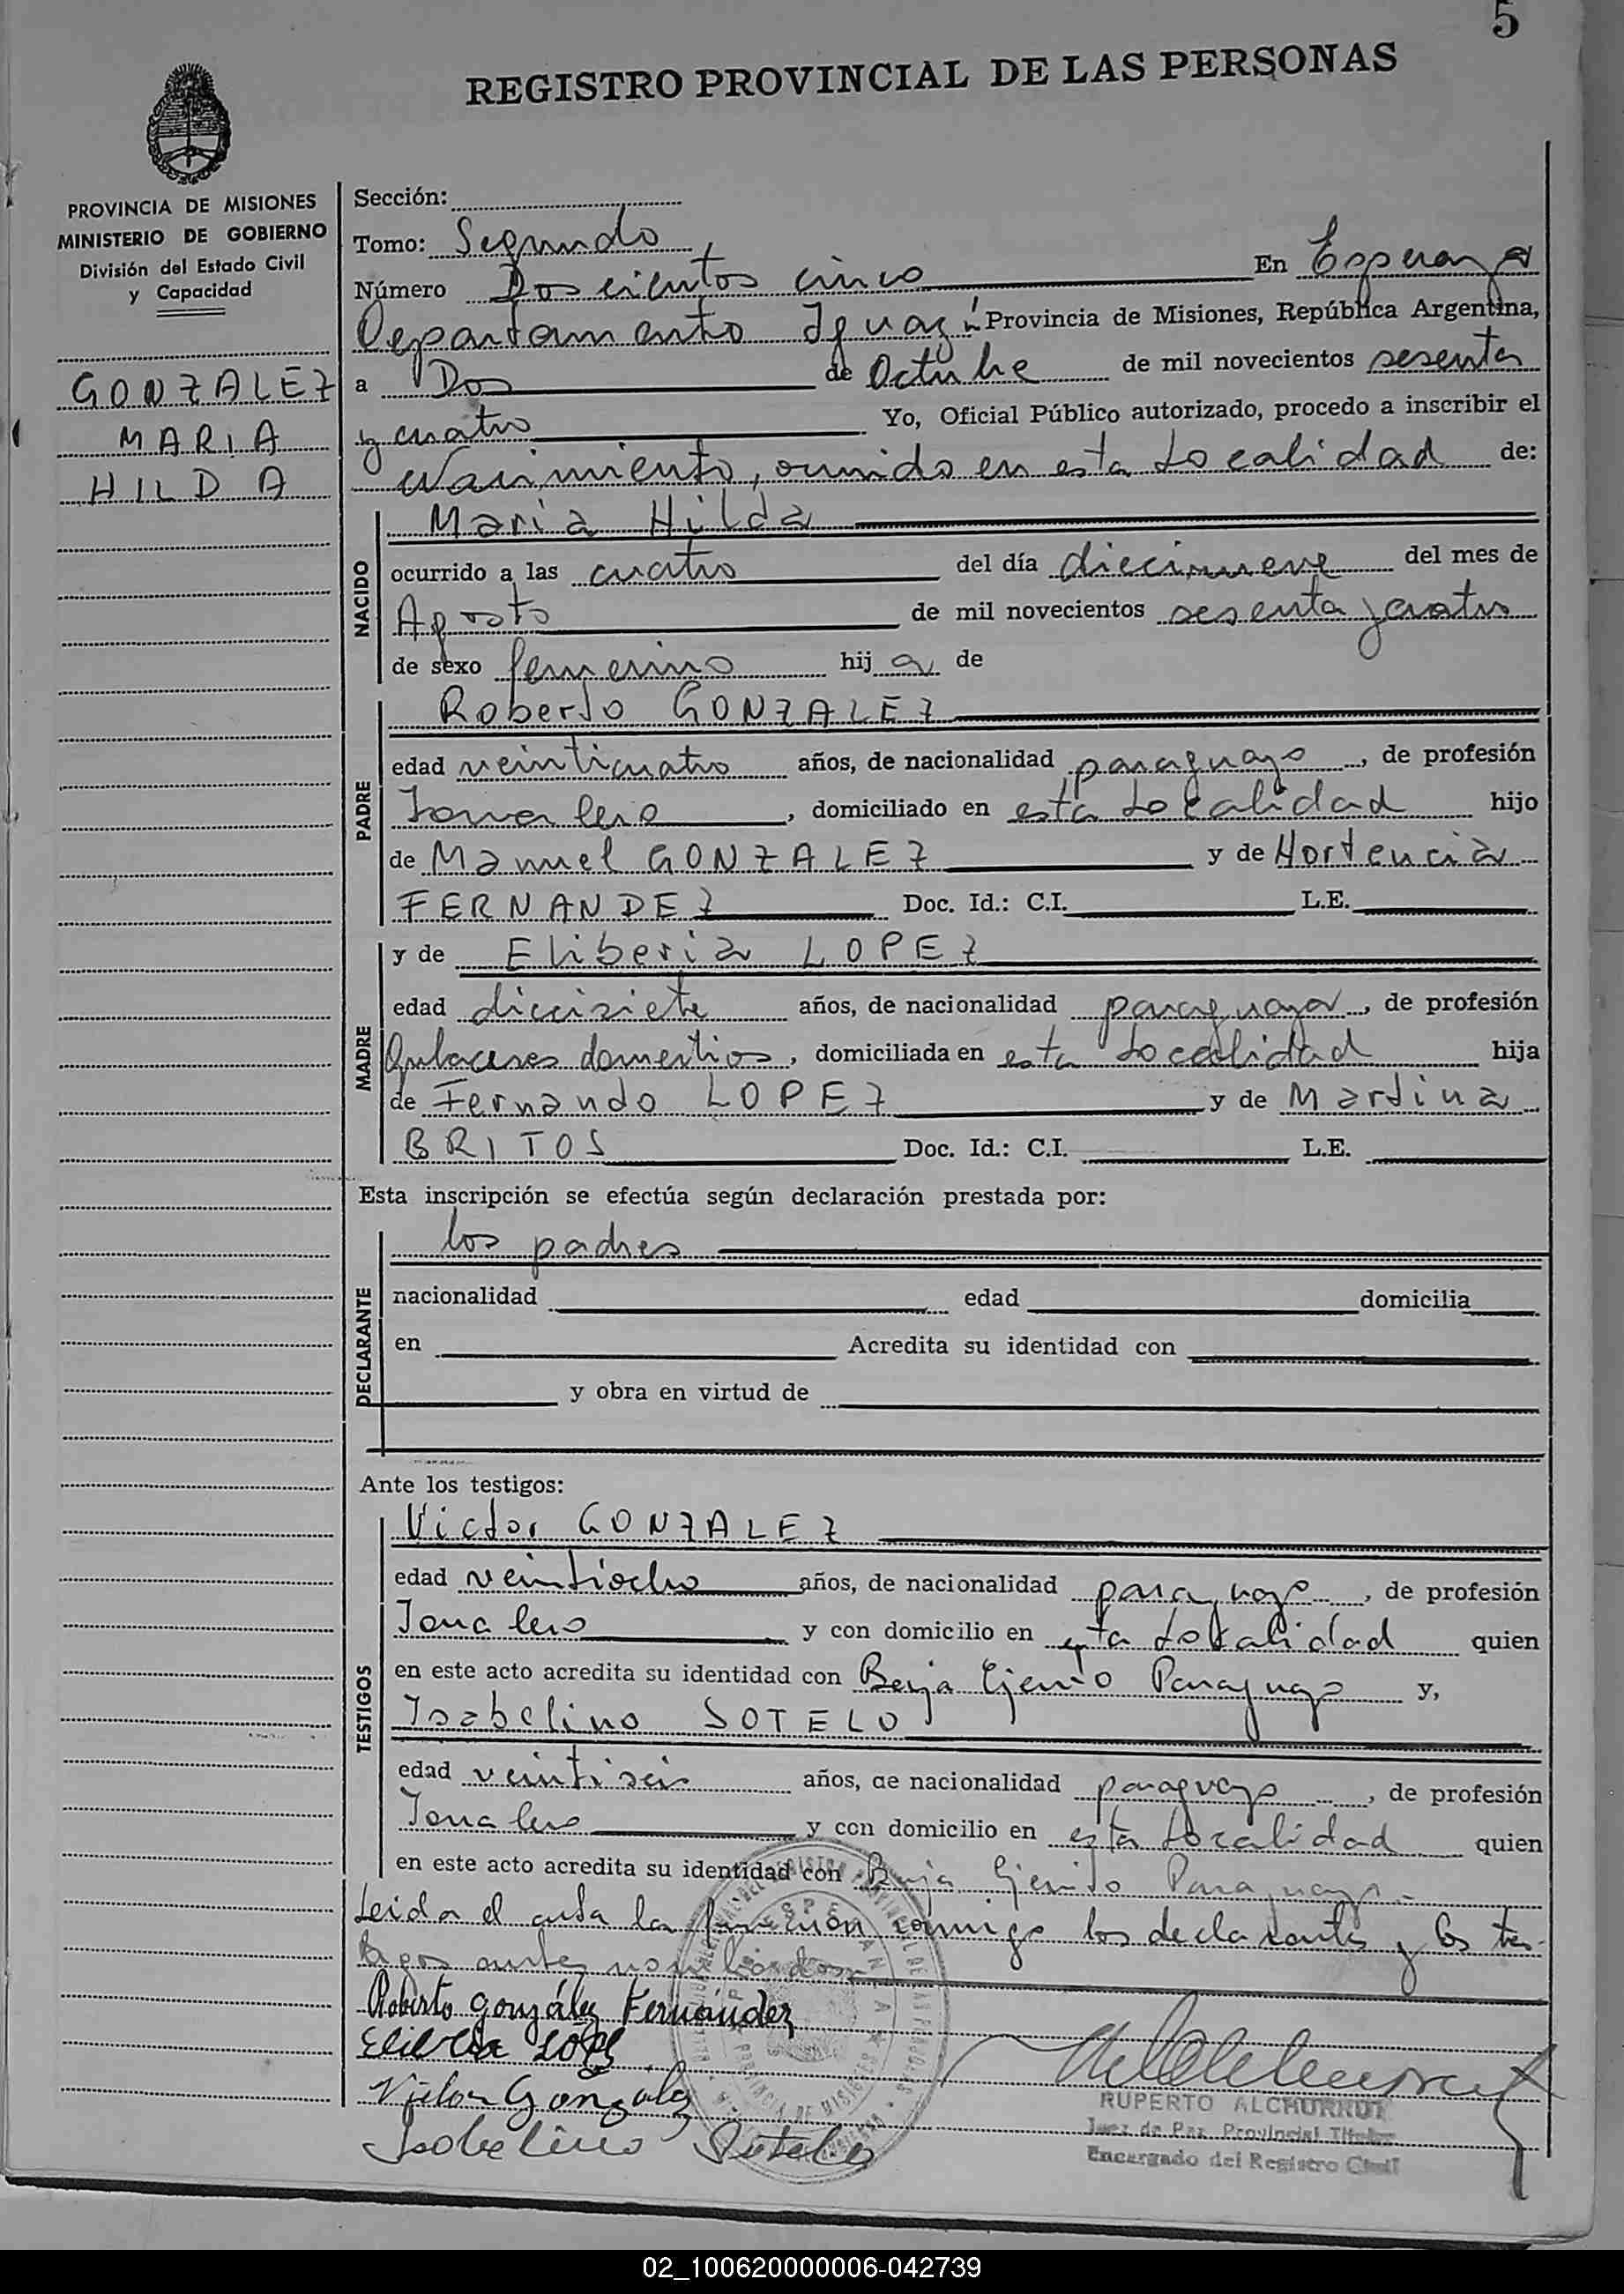 5
REGISTRO PROVINCIAL DE LAS PERSONAS
PROVINCIA DE MISIONES
MINISTERIO DE GOBIERNO
División del Estado Civil
y Capacidad
GONZALEZ
MARIA
HILDA
Sección:
Tomo: Segundo,
Número Doscientos cinco En Esperanza
Departamento Iguazú Provincia de Misiones, República Argentina,
a Dos de Octubre de mil novecientos sesenta
y cuatro Yo, Oficial Público autorizado, procedo a inscribir el
Nacimiento, ocurrido en esta Localidad de:
NACIDO
Maria Hilda
ocurrido a las cuatro del día diecinueve del mes de
Agosto de mil novecientos sesenta y cuatro
de sexo femenino hija de
PADRE
Roberto GONZALEZ
edad veinticuatro años, de nacionalidad paraguayo, de profesión
Jornalero, domiciliado en esta Localidad hijo
de Manuel GONZALEZ y de Hortencia
FERNANDEZ Doc. Id.: C.I. L.E.
MADRE
y de Eliberia LOPEZ
edad diecisiete años, de nacionalidad paraguaya, de profesión
Quehaceres domesticos, domiciliada en esta Localidad hija
de Fernando LOPEZ y de Martina
BRITOS Doc. Id.: C.I. L.E.
Esta inscripción se efectúa según declaración prestada por:
DECLARANTE
los padres
nacionalidad edad domicilia
en Acredita su identidad con
y obra en virtud de
Ante los testigos:
TESTIGOS
Victor GONZALEZ
edad veintiocho años, de nacionalidad paraguayo, de profesión
Jornalero y con domicilio en esta Localidad quien
en este acto acredita su identidad con Baja Ejercito Paraguayo y,
Isabelino SOTELO
edad veintiseis años, de nacionalidad paraguayo, de profesión
Jornalero y con domicilio en esta Localidad quien
en este acto acredita su identidad con Baja Ejercito Paraguayo
Leida el acta la firman conmigo los declarantes y los tes-
tigos antes nombrados
Roberto González Fernández
Eliberia López
Victor Gonzalez
Isabelino Sotelo
ESPERANZA
PROVINCIA DE MISIONES
RUPERTO ALCHURRUT
Juez de Paz Provincial Titular
Encargado del Registro Civil
02_100620000006-042739